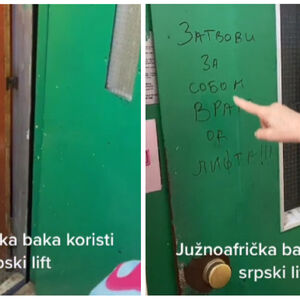 ka baka koristi
pski lift
ЗАТВОРИ
ЗА
СОБОМ
ВРА
ОД
ЛИФТА!!!
Južnoafrička ba
srpski li